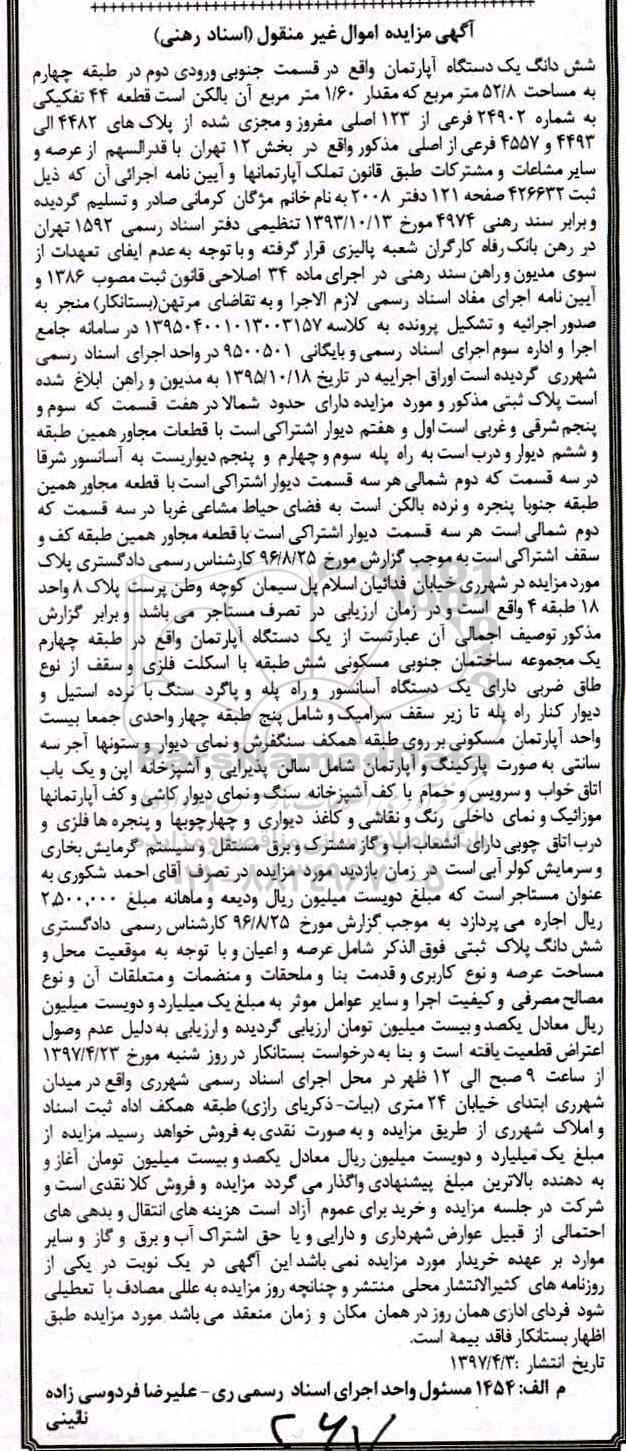 آگهی مزایده اموال غیر منقول (اسناد رهنی)
شش دانگ یک دستگاه آپارتمان واقع در قسمت جنوبی ورودی دوم در طبقه چهارم
به مساحت ۵۲/۸ متر مربع که مقدار ۱/۶۰ متر مربع آن بالکن است قطعه ۴۴ تفکیکی
به شماره ۲۴۹۰۲ فرعی از ۱۲۳ اصلی مفروز و مجزی شده از پلاک های ۴۴۸۲ الی
۴۴۹۳ و ۴۵۵۷ فرعی از اصلی مذکور واقع در بخش ۱۲ تهران با قدرالسهم از عرصه و
سایر مشاعات و مشترکات طبق قانون تملک آپارتمانها و آیین نامه اجرائی آن که ذیل
ثبت ۴۲۶۶۳۲ صفحه ۱۲۱ دفتر ۲۰۰۸ به نام خانم مژگان کرمانی صادر و تسلیم گردیده
و برابر سند رهنی ۴۹۷۴ مورخ ۱۳۹۳/۱۰/۱۳ تنظیمی دفتر اسناد رسمی ۱۵۹۲ تهران
در رهن بانک رفاه کارگران شعبه پالیزی قرار گرفته و با توجه به عدم ایفای تعهدات از
سوی مدیون و راهن سند رهنی در اجرای ماده ۳۴ اصلاحی قانون ثبت مصوب ۱۳۸۶ و
آیین نامه اجرای مفاد اسناد رسمی لازم الاجرا و به تقاضای مرتهن(بستانکار) منجر به
صدور اجرائیه و تشکیل پرونده به کلاسه ۱۳۹۵۰۴۰۰۱۰۱۳۰۰۳۱۵۷ در سامانه جامع
اجرا و اداره سوم اجرای اسناد رسمی و بایگانی ۹۵۰۰۵۰۱ در واحد اجرای اسناد رسمی
شهرری گردیده است اوراق اجراییه در تاریخ ۱۳۹۵/۱۰/۱۸ به مدیون و راهن ابلاغ شده
است پلاک ثبتی مذکور و مورد مزایده دارای حدود شمالا در هفت قسمت که سوم و
پنجم شرقی و غربی است اول و هفتم دیوار اشتراکی است با قطعات مجاور همین طبقه
و ششم دیوار و درب است به راه پله سوم و چهارم و پنجم دیواریست به آسانسور شرقا
در سه قسمت که دوم شمالی هر سه قسمت دیوار اشتراکی است با قطعه مجاور همین
طبقه جنوبا پنجره و نرده بالکن است به فضای حیاط مشاعی غربا در سه قسمت که
دوم شمالی است هر سه قسمت دیوار اشتراکی است با قطعه مجاور همین طبقه کف و
سقف اشتراکی است به موجب گزارش مورخ ۹۶/۸/۲۵ کارشناس رسمی دادگستری پلاک
مورد مزایده در شهرری خیابان فدائیان اسلام پل سیمان کوچه وطن پرست پلاک ۸ واحد
۱۸ طبقه ۴ واقع است و در زمان ارزیابی در تصرف مستاجر می باشد و برابر گزارش
مذکور توصیف اجمالی آن عبارتست از یک دستگاه آپارتمان واقع در طبقه چهارم
یک مجموعه ساختمان جنوبی مسکونی شش طبقه با اسکلت فلزی و سقف از نوع
طاق ضربی دارای یک دستگاه آسانسور و راه پله و پاگرد سنگ با نرده استیل و
دیوار کنار راه پله تا زیر سقف سرامیک و شامل پنج طبقه چهار واحدی جمعا بیست
واحد آپارتمان مسکونی بر روی طبقه همکف سنگفرش و نمای دیوار و ستونها آجر سه
سانتی به صورت پارکینگ و آپارتمان شامل سالن پذیرایی و آشپزخانه اپن و یک باب
اتاق خواب و سرویس و حمام با کف آشپزخانه سنگ و نمای دیوار کاشی و کف آپارتمانها
موزائیک و نمای داخلی رنگ و نقاشی و کاغذ دیواری و چهارچوبها و پنجره ها فلزی و
درب اتاق چوبی دارای انشعاب آب و گاز مشترک و برق مستقل و سیستم گرمایش بخاری
و سرمایش کولر آبی است در زمان بازدید مورد مزایده در تصرف آقای احمد شکوری به
عنوان مستاجر است که مبلغ دویست میلیون ریال ودیعه و ماهانه مبلغ ۲,۵۰۰,۰۰۰
ریال اجاره می پردازد به موجب گزارش مورخ ۹۶/۸/۲۵ کارشناس رسمی دادگستری
شش دانگ پلاک ثبتی فوق الذکر شامل عرصه و اعیان و با توجه به موقعیت محل و
مساحت عرصه و نوع کاربری و قدمت بنا و ملحقات و منضمات و متعلقات آن و نوع
مصالح مصرفی و کیفیت اجرا و سایر عوامل موثر به مبلغ یک میلیارد و دویست میلیون
ریال معادل یکصد و بیست میلیون تومان ارزیابی گردیده و ارزیابی به دلیل عدم وصول
اعتراض قطعیت یافته است و بنا به درخواست بستانکار در روز شنبه مورخ ۱۳۹۷/۴/۲۳
از ساعت ۹ صبح الی ۱۲ ظهر در محل اجرای اسناد رسمی شهرری واقع در میدان
شهرری ابتدای خیابان ۲۴ متری (بیات-ذکریای رازی) طبقه همکف اداه ثبت اسناد
و املاک شهرری از طریق مزایده و به صورت نقدی به فروش خواهد رسید. مزایده از
مبلغ یک میلیارد و دویست میلیون ریال معادل یکصد و بیست میلیون تومان آغاز و
به دهنده بالاترین مبلغ پیشنهادی واگذار می گردد مزایده و فروش کلا نقدی است و
شرکت در جلسه مزایده و خرید برای عموم آزاد است هزینه های انتقال و بدهی های
احتمالی از قبیل عوارض شهرداری و دارایی و یا حق اشتراک آب و برق و گاز و سایر
موارد بر عهده خریدار مورد مزایده نمی باشد این آگهی در یک نوبت در یکی از
روزنامه های کثیرالانتشار محلی منتشر و چنانچه روز مزایده به عللی مصادف با تعطیلی
شود فردای اداری همان روز در همان مکان و زمان منعقد می باشد مورد مزایده طبق
اظهار بستانکار فاقد بیمه است.
تاریخ انتشار :۱۳۹۷/۴/۳
م الف: ۱۴۵۴ مسئول واحد اجرای اسناد رسمی ری- علیرضا فردوسی زاده
نائینی